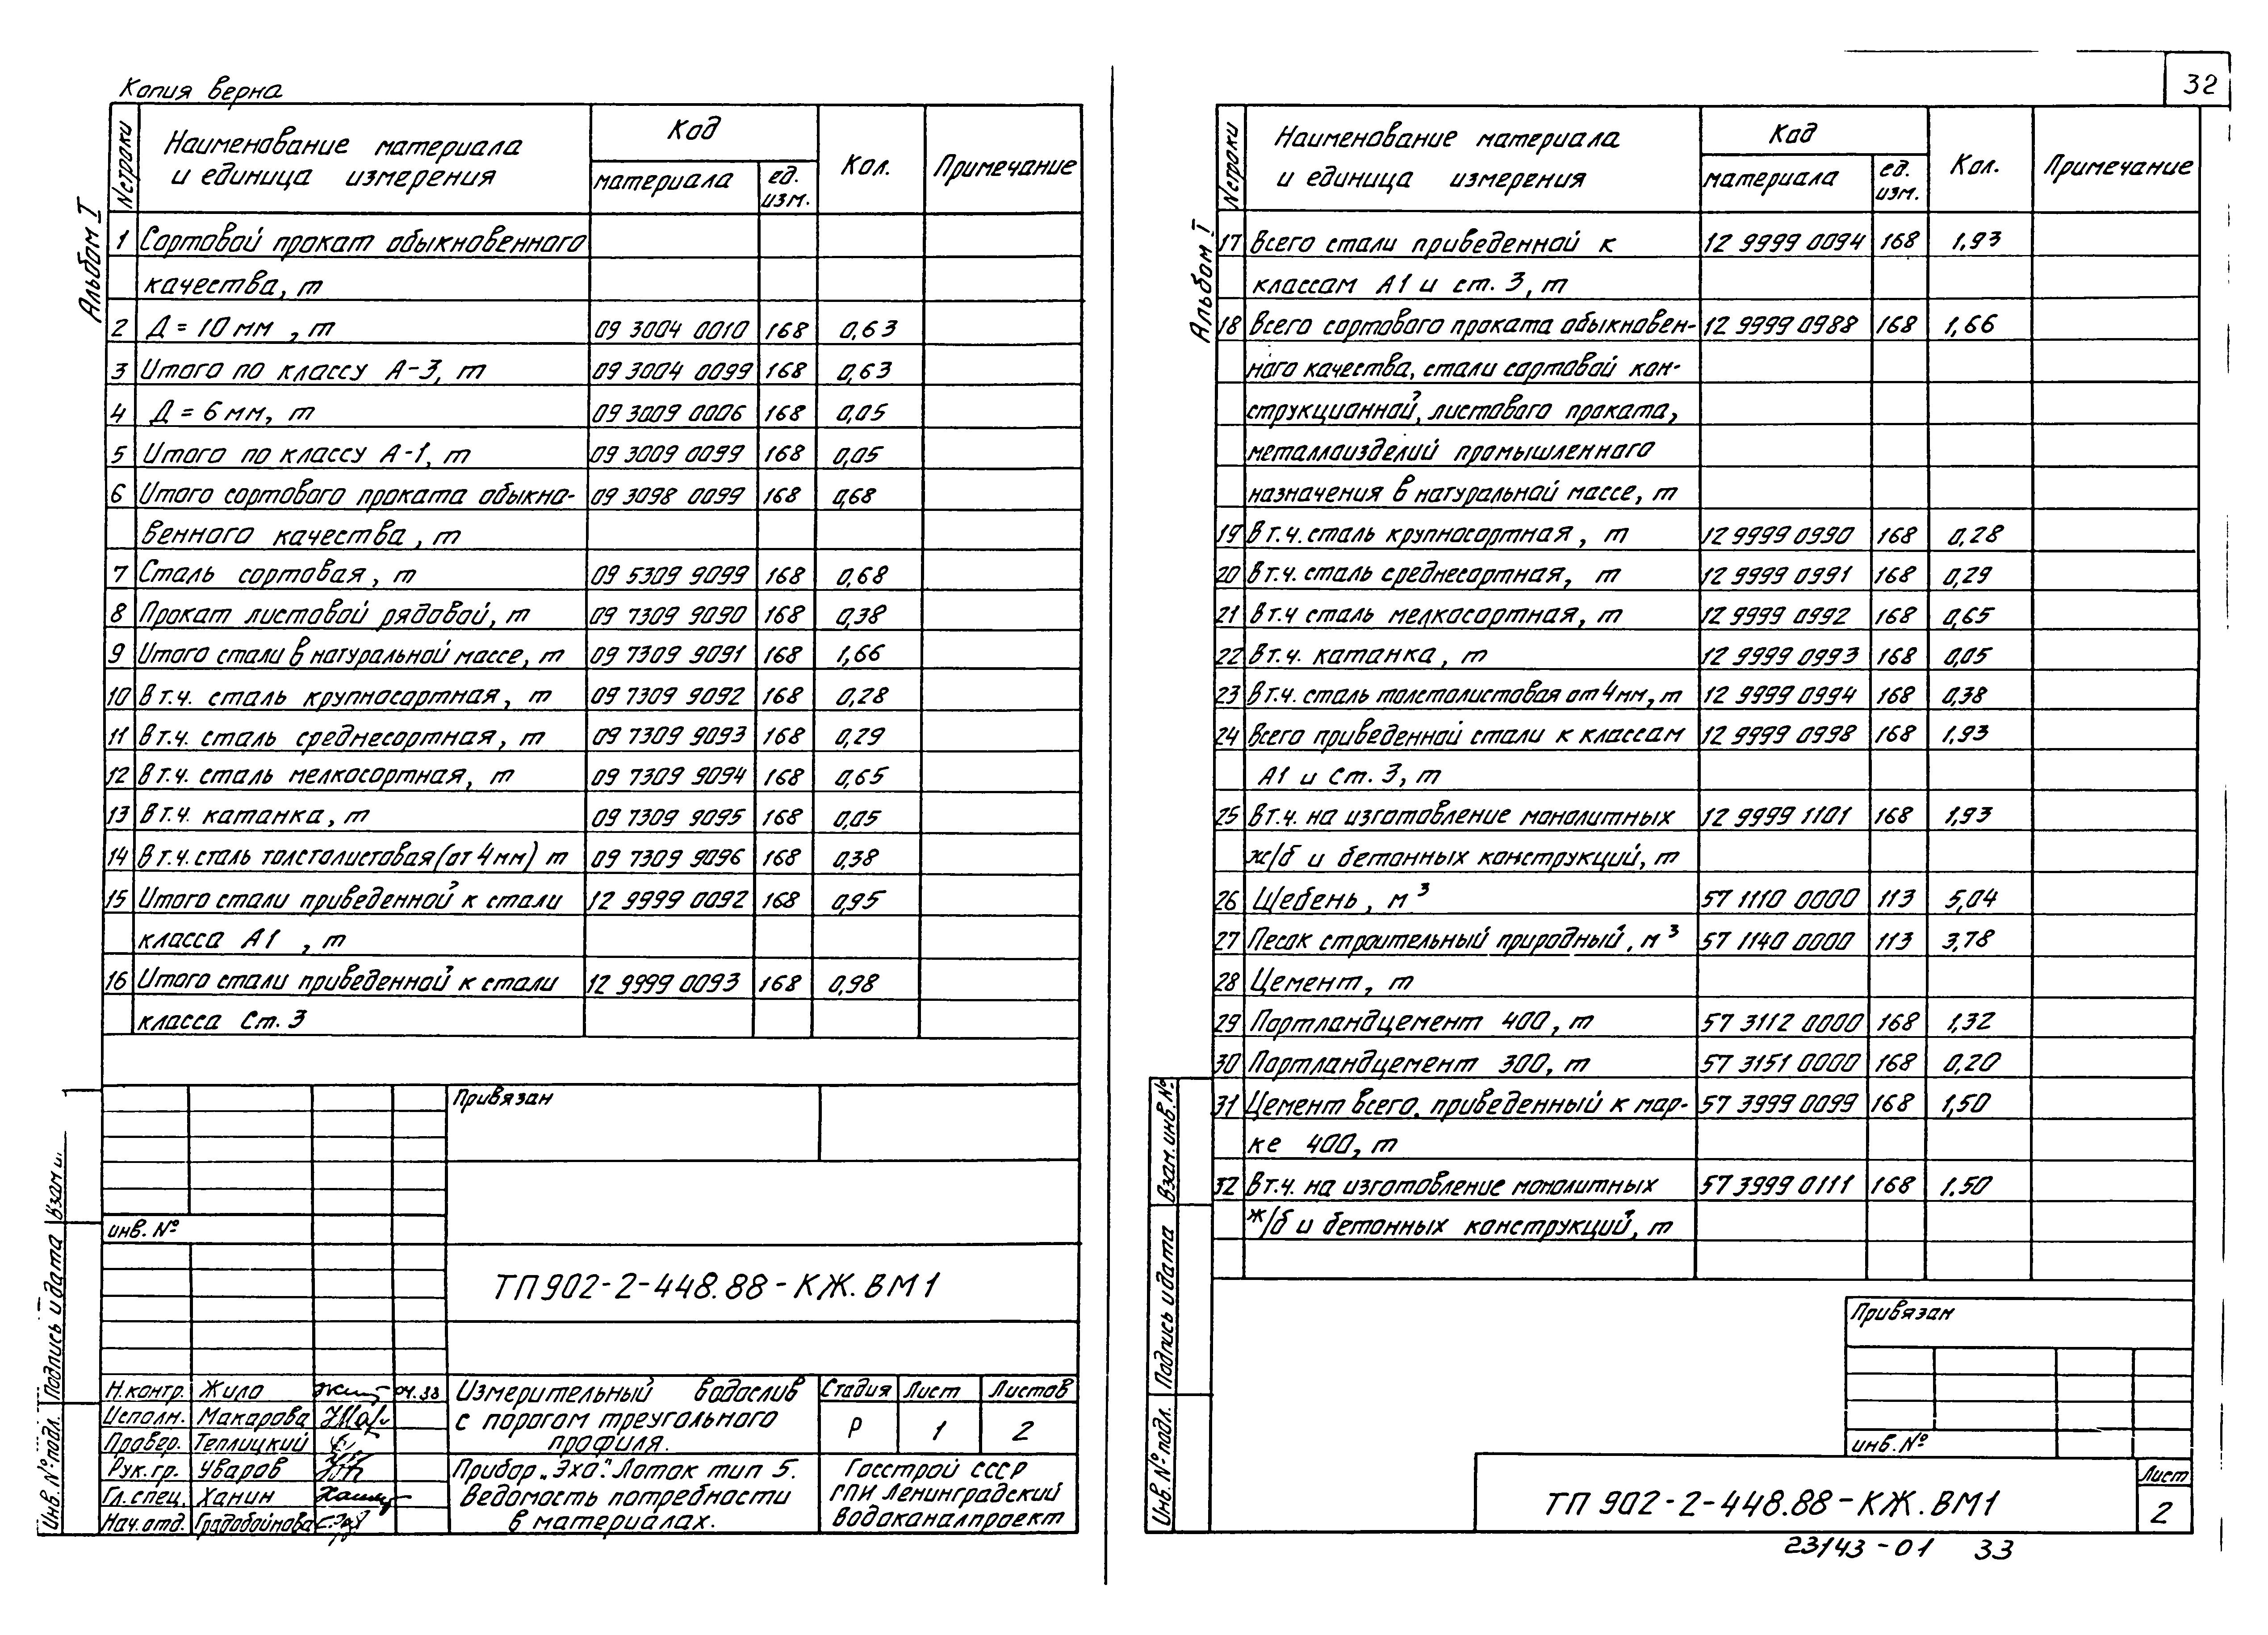 Копия верна
Альбом I
№ строки
Наименование материала
и единица измерения
Код
материала
ед.
изм.
Кол.
Примечание
1 Сортовой прокат обыкновенного
качества, т
2 Д = 10 мм , т 09 3004 0010 168 0,63
3 Итого по классу А-3, т 09 3004 0099 168 0,63
4 Д = 6 мм, т 09 3009 0006 168 0,05
5 Итого по классу А-1, т 09 3009 0099 168 0,05
6 Итого сортового проката обыкно- 09 3098 0099 168 0,68
венного качества, т
7 Сталь сортовая, т 09 5309 9099 168 0,68
8 Прокат листовой рядовой, т 09 7309 9090 168 0,38
9 Итого стали в натуральной массе, т 09 7309 9091 168 1,66
10 В т.ч. сталь крупносортная, т 09 7309 9092 168 0,28
11 В т.ч. сталь среднесортная, т 09 7309 9093 168 0,29
12 В т.ч. сталь мелкосортная, т 09 7309 9094 168 0,65
13 В т.ч. катанка, т 09 7309 9095 168 0,05
14 В т.ч. сталь толстолистовая (от 4 мм) т 09 7309 9096 168 0,38
15 Итого стали приведенной к стали 12 9999 0092 168 0,95
класса А1 , т
16 Итого стали приведенной к стали 12 9999 0093 168 0,98
класса Ст. 3
Привязан
инв. №
ТП 902-2-448.88-КЖ.ВМ1
Н.контр. Жило 04.88
Исполн. Макарова
Провер. Теплицкий
Рук.гр. Уваров
Гл.спец. Ханин
Нач.отд. Градобойнова
Измерительный водослив
с порогом треугольного
профиля.
Прибор „Эхо". Лоток тип 5.
Ведомость потребности
в материалах.
Стадия Лист Листов
Р 1 2
Госстрой СССР
ГПИ Ленинградский
Водоканалпроект
Взам и.
Подпись и дата
Инв. № подл.
32
Альбом I
№ строки
Наименование материала
и единица измерения
Код
материала
ед.
изм.
Кол.
Примечание
17 Всего стали приведенной к 12 9999 0094 168 1,93
классам А1 и ст. 3, т
18 Всего сортового проката обыкновен- 12 9999 0988 168 1,66
ного качества, стали сортовой кон-
струкционной, листового проката,
металлоизделий промышленного
назначения в натуральной массе, т
19 В т.ч. сталь крупносортная, т 12 9999 0990 168 0,28
20 В т.ч. сталь среднесортная, т 12 9999 0991 168 0,29
21 В т.ч сталь мелкосортная, т 12 9999 0992 168 0,65
22 В т.ч. катанка, т 12 9999 0993 168 0,05
23 В т.ч. сталь толстолистовая от 4 мм, т 12 9999 0994 168 0,38
24 Всего приведенной стали к классам 12 9999 0998 168 1,93
А1 и Ст. 3, т
25 В т.ч. на изготовление монолитных 12 9999 1101 168 1,93
ж/б и бетонных конструкций, т
26 Щебень, м³ 57 1110 0000 113 5,04
27 Песок строительный природный, м³ 57 1140 0000 113 3,78
28 Цемент, т
29 Портландцемент 400, т 57 3112 0000 168 1,32
30 Портландцемент 300, т 57 3151 0000 168 0,20
31 Цемент всего. приведенный к мар- 57 3999 0099 168 1,50
ке 400, т
32 В т.ч. на изготовление монолитных 57 3999 0111 168 1.50
ж/б и бетонных конструкций, т
Привязан
инв. №
ТП 902-2-448.88-КЖ.ВМ1
Лист
2
Взам. инв. №
Подпись и дата
Инв. № подл.
23143-01 33